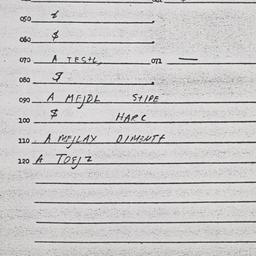 050 $
060 $
070 A TESTL 071 —
080 $
090 A MFJDL STIPE
100 $ HARC
110 A MFJLAY DIMONTF
120 A TOFJZ